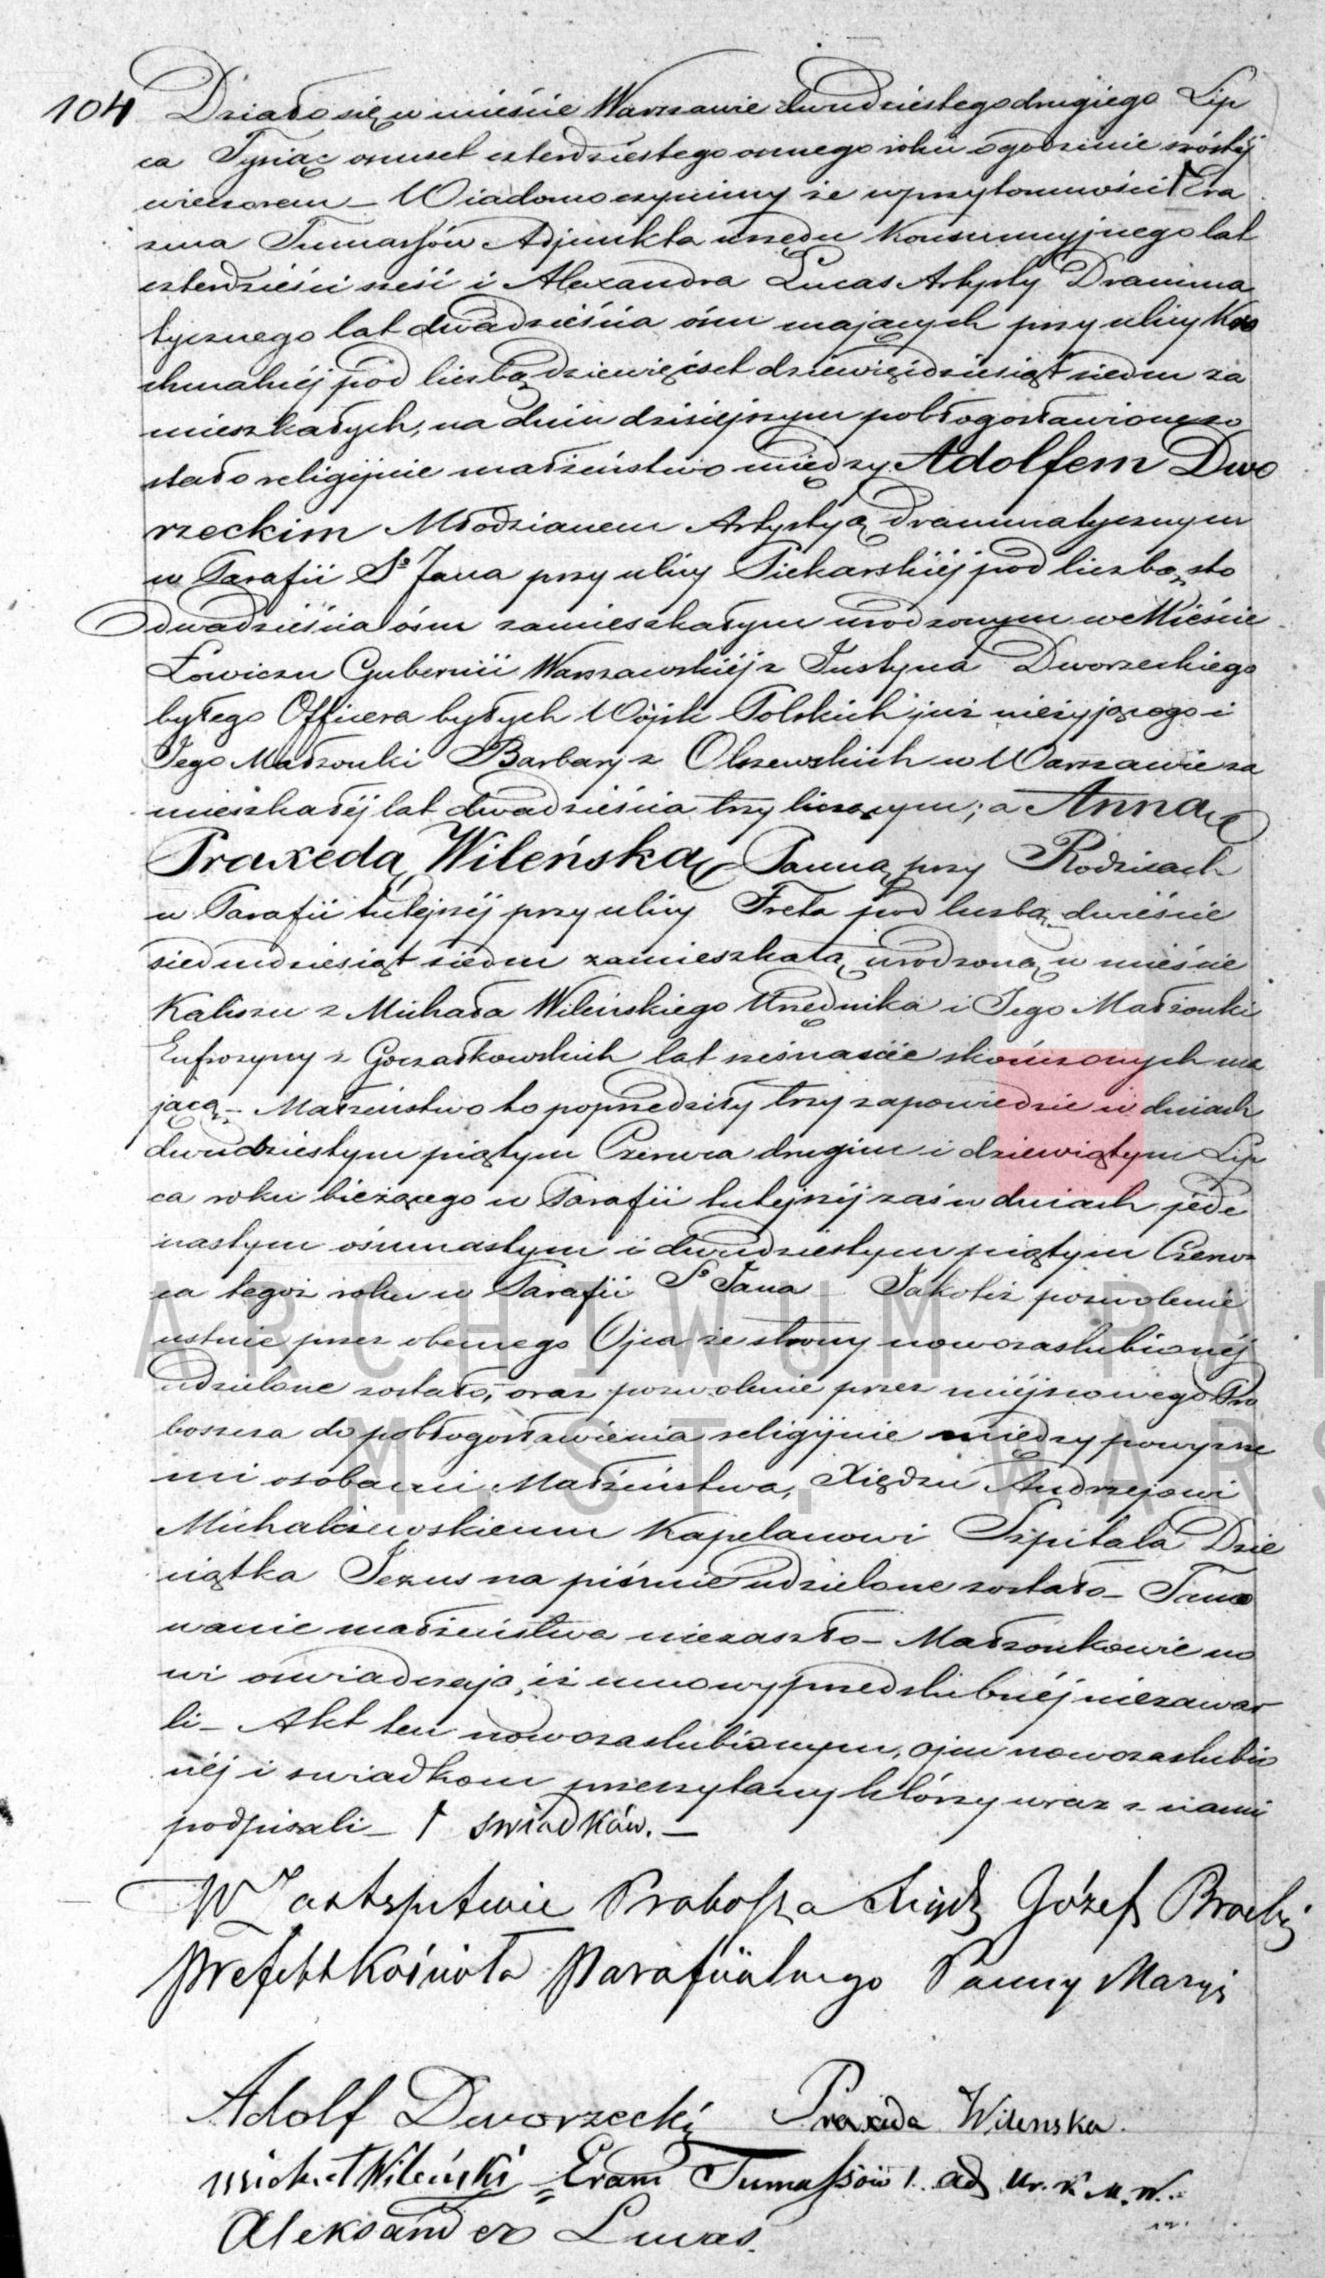 104 Działo się w mieście Warszawie dwudziestego drugiego Lip
ca Tysiąc osmset czterdziestego osmego roku o godzinie szóstéj
wieczorem – Wiadomo czynimy że w przytomności ꝉ Era
zma Tumassów Adjunkta urzędu Konsumcyjnego lat
czterdzieści sześć i Alexandra Lucas Artysty Dramma
tycznego lat dwadzieścia ośm mających przy ulicy Kro
chmalnéj pod liczbą dziewięćset dziewięćdziesiąt siedm za
mieszkałych, na dniu dzisiejszym pobłogosławione zo
stało religijnie małżeństwo między Adolfem Dwo
rzeckim Młodzianem Artystyą drammatycznym
w Parafii Sgo Jana przy ulicy Piekarskiéj pod liczbą sto
dwadzieścia ośm zamieszkałym urodzonym we Mieście
Łowiczu Gubernii Warszawskiéj z Justyna Dworzeckiego
byłego Officera byłych Wojsk Polskich już nieżyjącego i
Jego Małżonki Barbary z Olszewskich w Warszawie za
mieszkałéj lat dwadzieścia trzy liczącym; a Anną
Praxedą Wileńską Panną przy Rodzicach
w Parafii tutejszéj przy ulicy Freta pod liczbą dwieście
siedmdziesiąt siedm zamieszkałą urodzoną w mieście
Kaliszu z Michała Wileńskiego Urzędnika i Jego Małżonki
Eufrozyny z Gorzałkowskich lat szesnaście skończonych ma
jącą – Małżeństwo to poprzedziły trzy zapowiedzie w dniach
dwudziestym piątym Czerwca drugim i dziewiątym Lip
ca roku bieżącego w Parafii tutejszéj zaś w dniach jede
nastym ośmnastym i dwudziestym piątym Czerw
ca tegoż roku w Parafii Sgo Jana – Jakotéż pozwolenie
ustnie przez obecnego Ojca ze strony nowozaślubionéj
udzielone zostało, oraz pozwolenie przez miejscowego Pro
boszcza do pobłogosławienia religijnie między powyższe
mi osobami Małżeństwa, Xiędzu Andrzejowi
Michalczewskiemu Kapelanowi Szpitala Dzie
ciątka Jezus na piśmie udzielone zostało – Tamo
wanie małżeństwa niezaszło – Małżonkowie no
wi oświadczają, iż umowy przedślubnéj niezawar
li – Akt ten nowozaślubionym, ojcu nowozaślubio
néj i świadkom przeczytany którzy wraz z nami
podpisali – ꝉ świadków. –
W Zastępstwie Proboszcza Xiądz Józef
Prefekt Kościoła Parafiialnego Panny Maryi
Adolf Dworzecki Praxeda Wilenska
Michał Wileński – Erazm Tumassów 1. adj. Ur. K. M. W.
Aleksander Lucas.
ARCHIWUM PA
M. ST. WARS